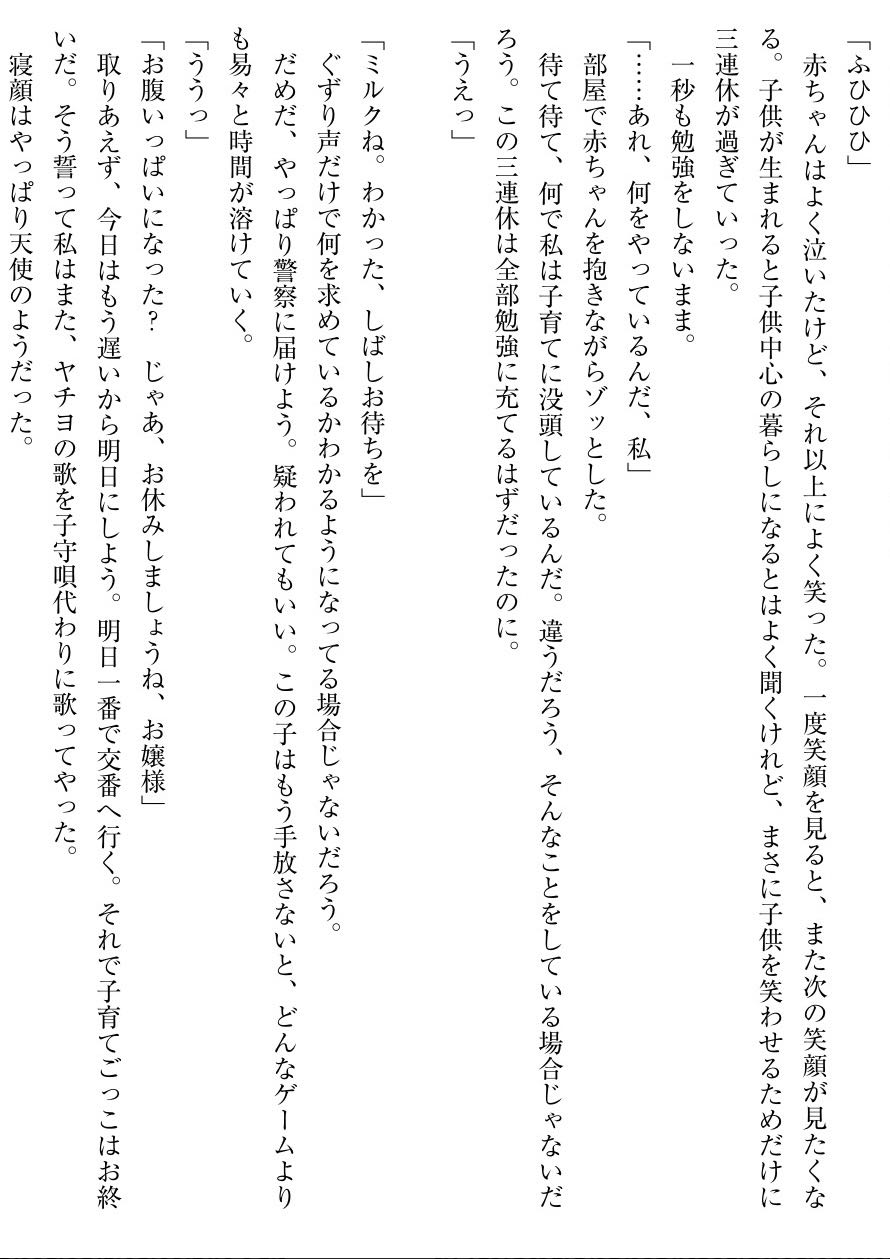 「ふひひひ」
　赤ちゃんはよく泣いたけど、それ以上によく笑った。一度笑顔を見ると、また次の笑顔が見たくな
る。子供が生まれると子供中心の暮らしになるとはよく聞くけれど、まさに子供を笑わせるためだけに
三連休が過ぎていった。
　一秒も勉強をしないまま。
「……あれ、何をやっているんだ、私」
　部屋で赤ちゃんを抱きながらゾッとした。
　待て待て、何で私は子育てに没頭しているんだ。違うだろう、そんなことをしている場合じゃないだ
ろう。この三連休は全部勉強に充てるはずだったのに。
「うえっ」
「ミルクね。わかった、しばしお待ちを」
　ぐずり声だけで何を求めているかわかるようになってる場合じゃないだろう。
　だめだ、やっぱり警察に届けよう。疑われてもいい。この子はもう手放さないと、どんなゲームより
も易々と時間が溶けていく。
「ううっ」
「お腹いっぱいになった？　じゃあ、お休みしましょうね、お嬢様」
　取りあえず、今日はもう遅いから明日にしよう。明日一番で交番へ行く。それで子育てごっこはお終
いだ。そう誓って私はまた、ヤチヨの歌を子守唄代わりに歌ってやった。
　寝顔はやっぱり天使のようだった。